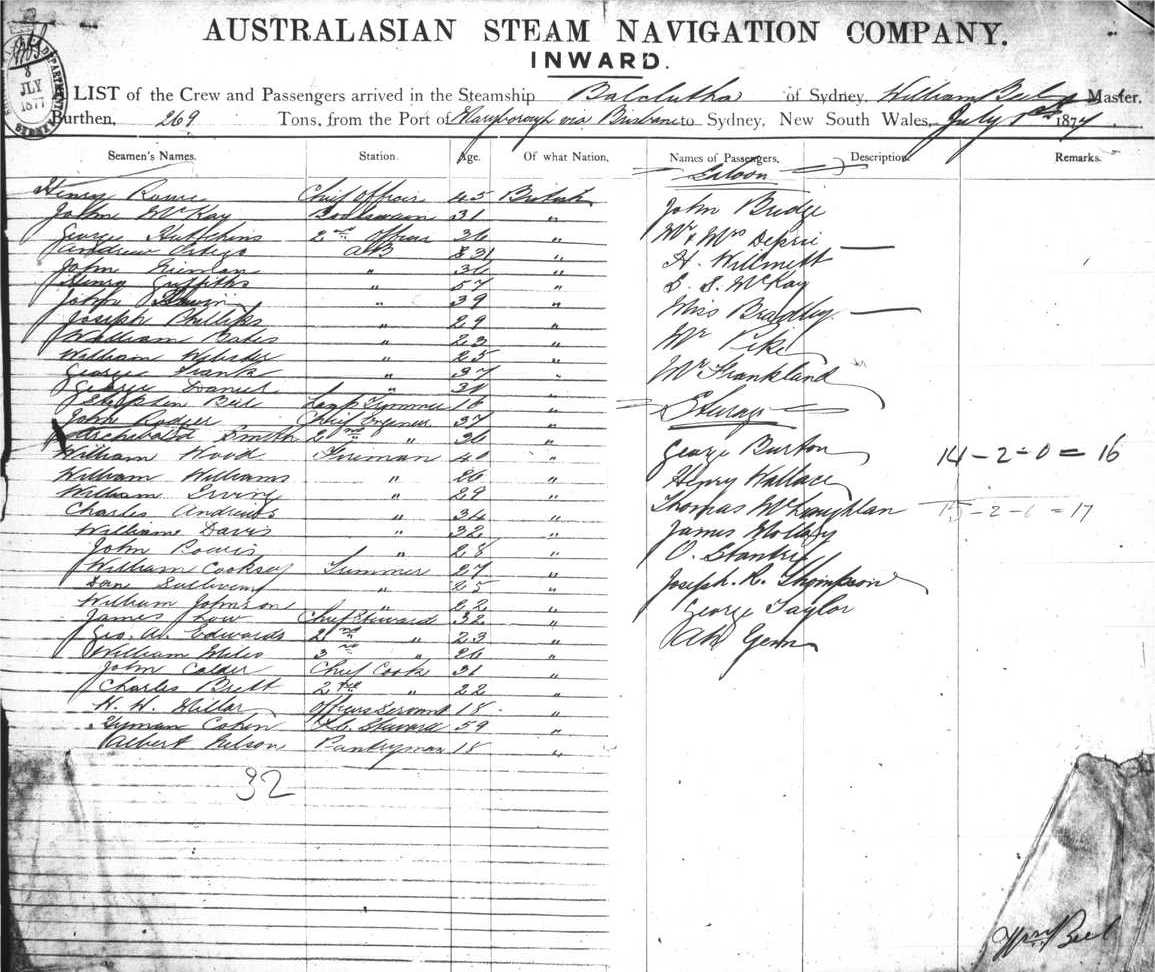 AUSTRALASIAN STEAM NAVIGATION COMPANY.
INWARD.
8
JLY
1877
LIST of the Crew and Passengers arrived in the Steamship Balclutha of Sydney, William Beel Master,
Burthen, 269 Tons, from the Port of Maryborough via Brisbane to Sydney, New South Wales, July 1877
Seamen's Names. Station. Age. Of what Nation. Names of Passengers. Description. Remarks.
Saloon
Henry Chief Officer 45 British
John McKay Boatswain 31 "
George Hutchins 2nd Officer 36 "
Andrew AB 31 "
John " 36 "
Henry Griffiths " 57 "
John " 39 "
Joseph Phillips " 29 "
William Bates " 23 "
William Webster " 25 "
George Frank " 37 "
George Daniel " 31 "
Stephen Beel Lamp Trimmer 16 "
John Rodger Chief Engineer 37 "
Archibald Smith 2nd " 36 "
William Wood Fireman 40 "
William Williams " 26 "
William Irving " 29 "
Charles Andrews " 34 "
William Davis " 32 "
John " 28 "
William Cooksey Trimmer 27 "
Dan Sullivan " 25 "
William Johnson " 22 "
James Low Chief Steward 32 "
Geo. A. Edwards 2nd " 23 "
William Miles 3rd " 26 "
John Calder Chief Cook 31 "
Charles Brett 2nd " 22 "
H. H. Millar Officers Servant 18 "
Hyman Cohen Steward 59 "
Albert Nelson Pantryman 18 "
32
John Bridge
Mr & Mrs
H. Willmett
McKay
Miss Bradley
Mr Pike
Mr Frankland
Steerage
George Burton 14 - 2 - 0 = 16
Henry Wallace
Thomas McLaughlan 15 - 2 - 0 = 17
James Molloy
O.
Joseph. R. Thompson
George Taylor
Ah Gem
Wm Beel